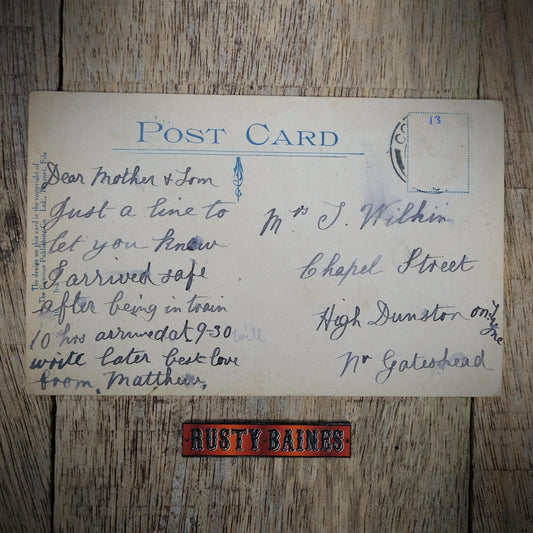 POST CARD
13
Dear Mother & Tom
Just a line to
let you know
I arrived safe
after being in train
10 hrs arrived at 9-30 will
write later best love
from. Matthew.
Mrs J. Wilkin
Chapel Street
High Dunston on Tyne
Nr Gateshead
The design on this card is the copyright of
RUSTY·BAINES